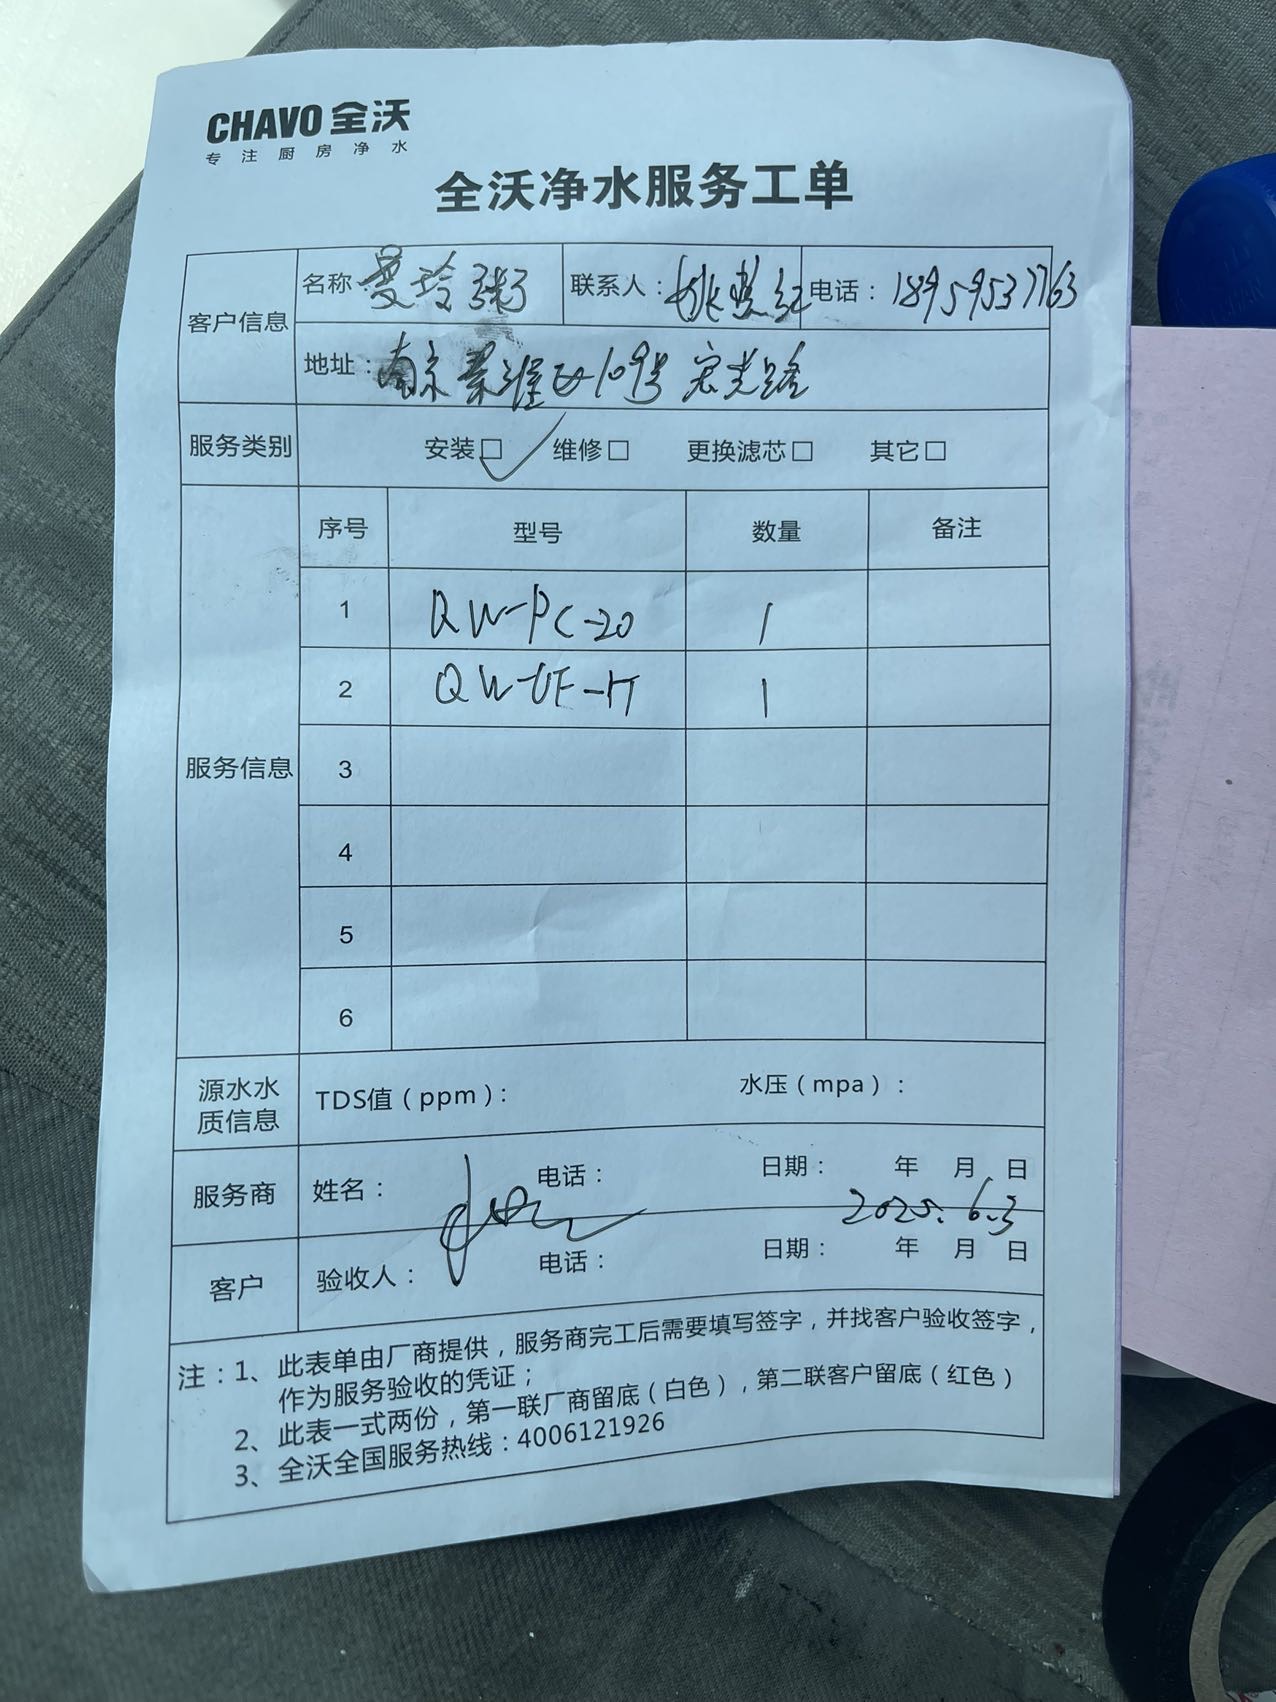 CHAVO 全沃
专注厨房净水
全沃净水服务工单
客户信息 名称 曼玲粥 联系人： 电话：18959537763
地址：南京秦淮区109号宏光路
服务类别 安装□ 维修□ 更换滤芯□ 其它□
服务信息 序号 型号 数量 备注
1 QW-PC-20 1
2 QW-UF-1T 1
3
4
5
6
源水水质信息 TDS值（ppm）： 水压（mpa）：
服务商 姓名： 电话： 日期： 年 月 日
2025.6.3
客户 验收人： 电话： 日期： 年 月 日
注：1、此表单由厂商提供，服务商完工后需要填写签字，并找客户验收签字，
作为服务验收的凭证；
2、此表一式两份，第一联厂商留底（白色），第二联客户留底（红色）
3、全沃全国服务热线：4006121926